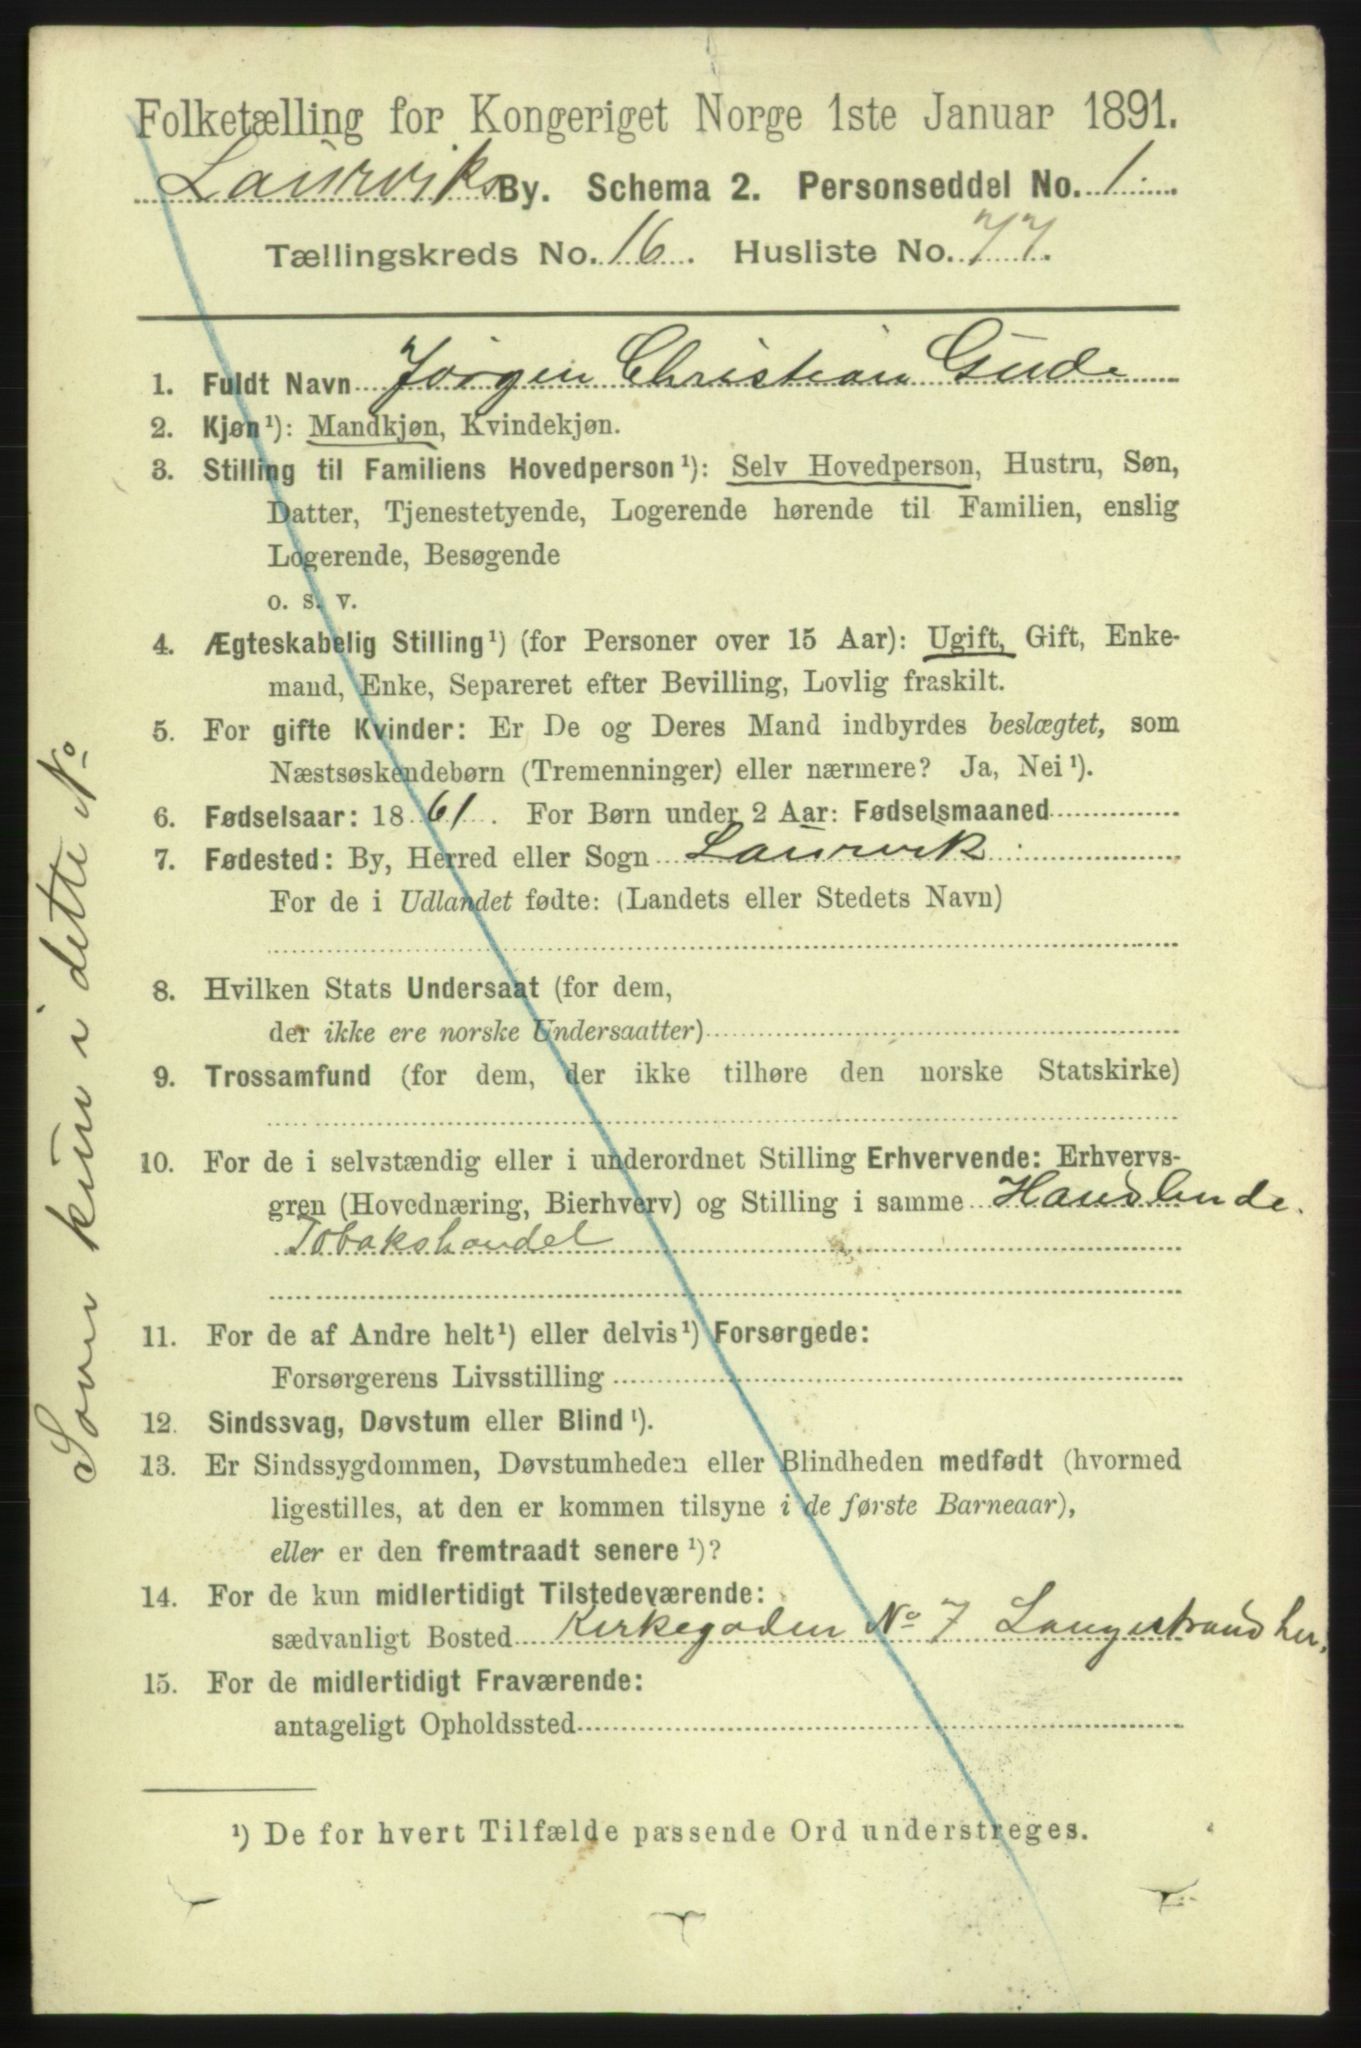 Folketælling for Kongeriget Norge 1ste Januar 1891.
Laurviks By. Schema 2. Personseddel No. 1.
Tællingskreds No. 16. Husliste No. 77.
1. Fuldt Navn Jörgen Christian Gude
2. Kjøn¹): Mandkjøn, Kvindekjøn.
3. Stilling til Familiens Hovedperson¹): Selv Hovedperson, Hustru, Søn,
Datter, Tjenestetyende, Logerende hørende til Familien, enslig
Logerende, Besøgende
o. s. v.
4. Ægteskabelig Stilling¹) (for Personer over 15 Aar): Ugift, Gift, Enke-
mand, Enke, Separeret efter Bevilling, Lovlig fraskilt.
5. For gifte Kvinder: Er De og Deres Mand indbyrdes beslægtet, som
Næstsøskendebørn (Tremenninger) eller nærmere? Ja, Nei¹).
6. Fødselsaar: 1861. For Børn under 2 Aar: Fødselsmaaned
7. Fødested: By, Herred eller Sogn Laurvik
For de i Udlandet fødte: (Landets eller Stedets Navn)
8. Hvilken Stats Undersaat (for dem,
der ikke ere norske Undersaatter)
9. Trossamfund (for dem, der ikke tilhøre den norske Statskirke)
10. For de i selvstændig eller i underordnet Stilling Erhvervende: Erhvervs-
gren (Hovednæring, Bierhverv) og Stilling i samme
Tobakshandel
11. For de af Andre helt¹) eller delvis¹) Forsørgede:
Forsørgerens Livsstilling
12. Sindssvag, Døvstum eller Blind¹).
13. Er Sindssygdommen, Døvstumheden eller Blindheden medfødt (hvormed
ligestilles, at den er kommen tilsyne i de første Barneaar),
eller er den fremtraadt senere¹)?
14. For de kun midlertidigt Tilstedeværende:
sædvanligt Bosted Kirkegaden No 7 Langestrand her.
15. For de midlertidigt Fraværende:
antageligt Opholdssted
¹) De for hvert Tilfælde passende Ord understreges.
Sover kun i dette No